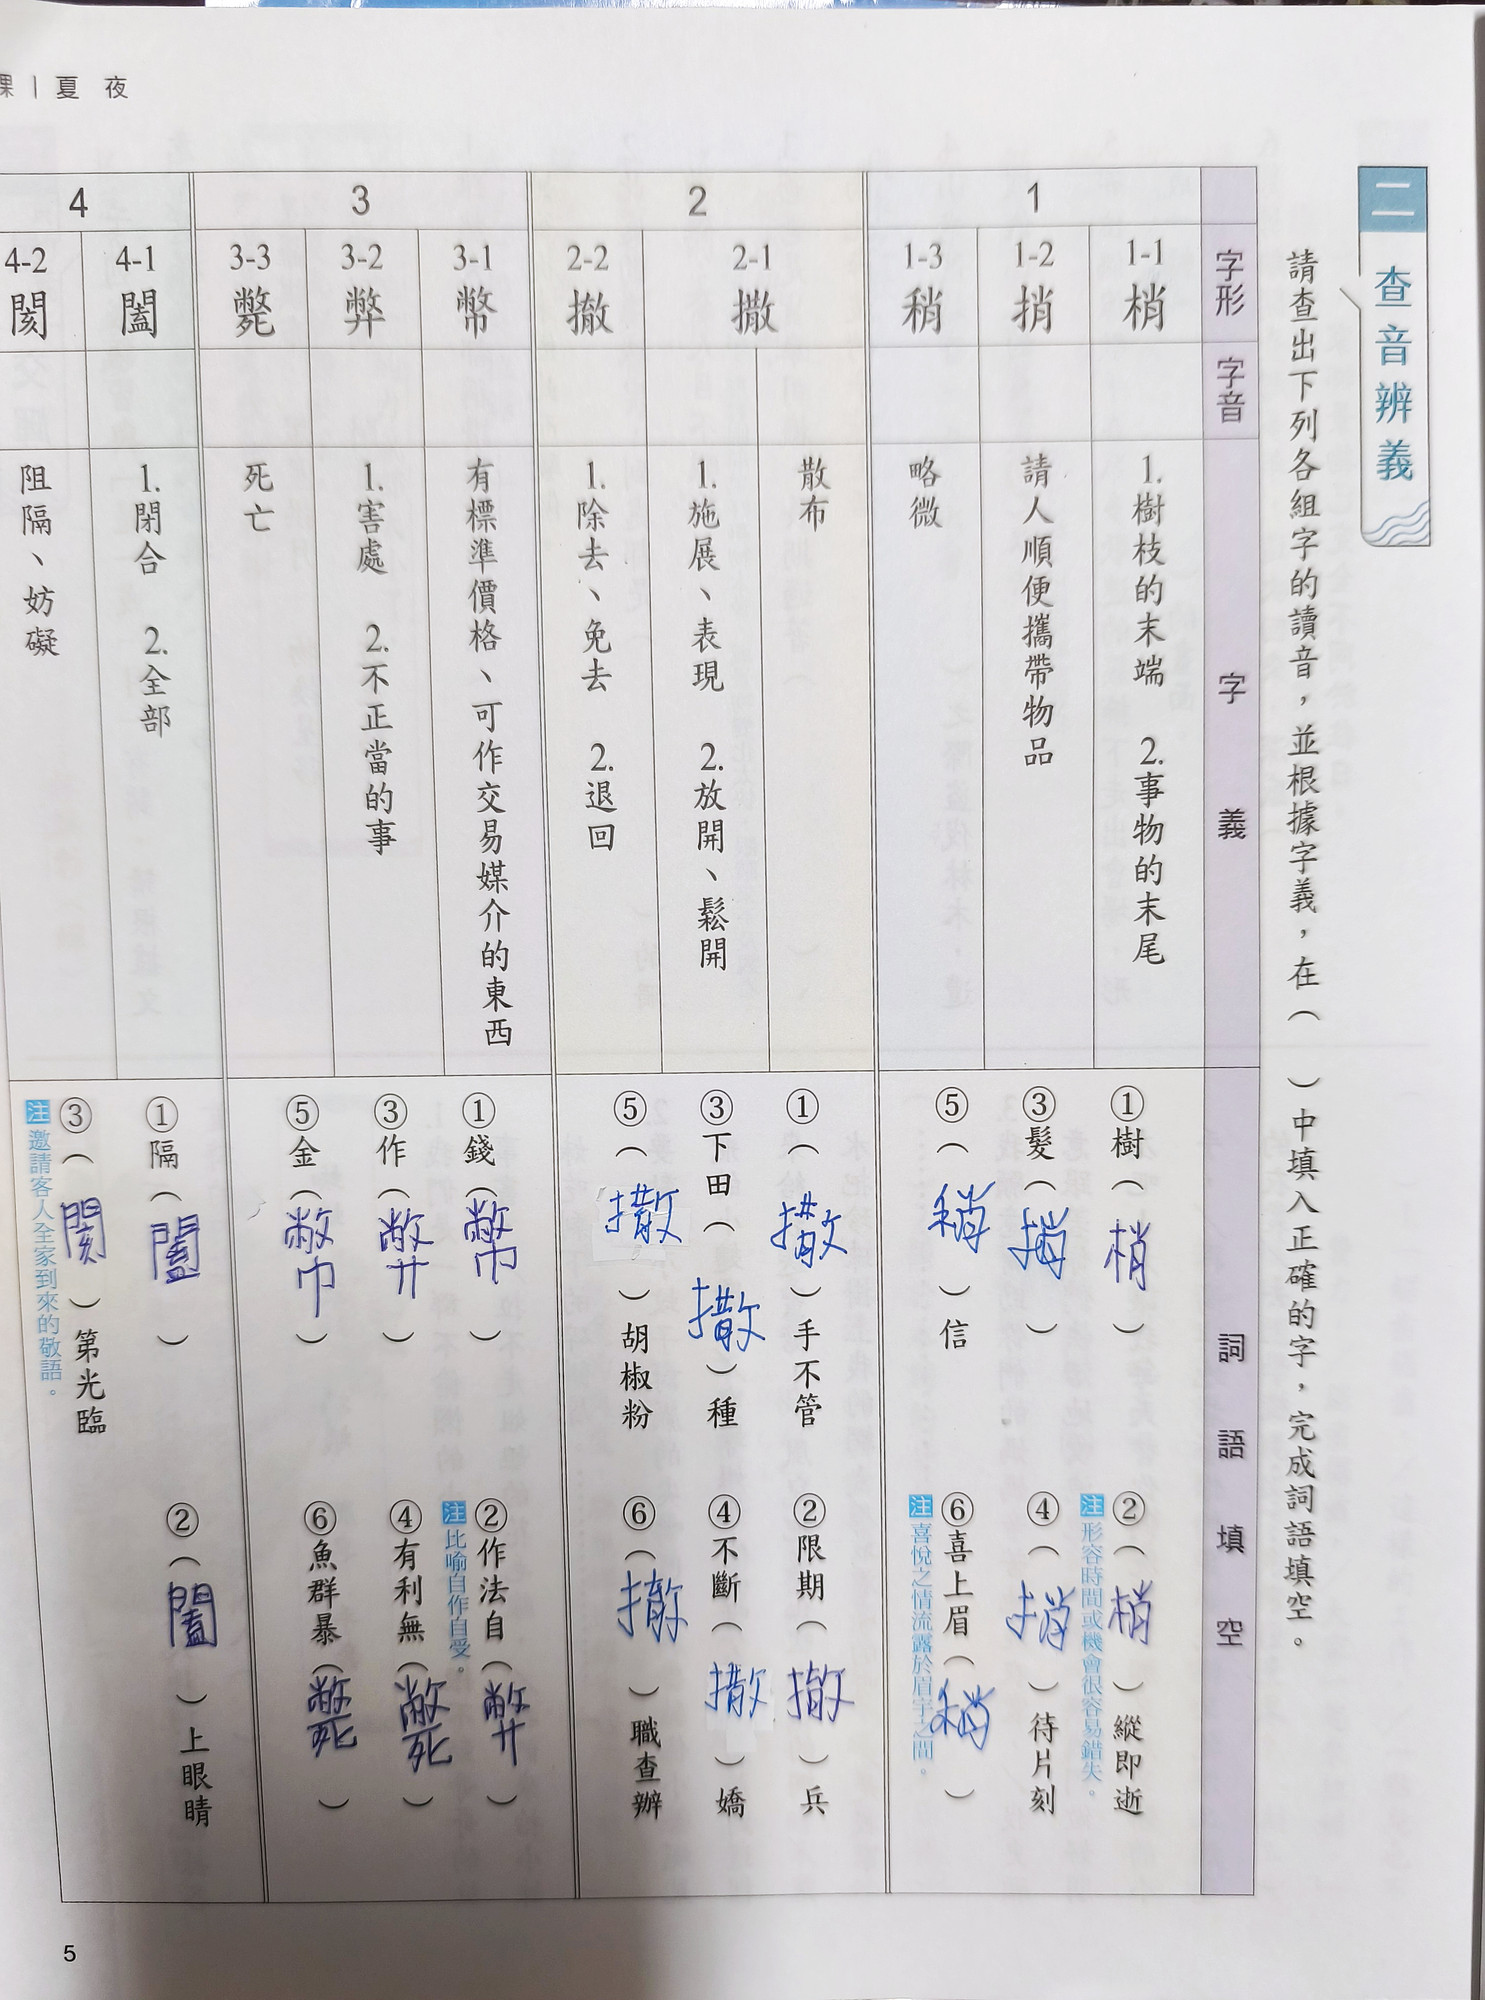 課｜夏夜
二 查音辨義
請查出下列各組字的讀音，並根據字義，在（　）中填入正確的字，完成詞語填空。
字形 字音 字義 詞語填空
1
1-1 梢
1.樹枝的末端 2.事物的末尾
1-2 捎
請人順便攜帶物品
1-3 稍
略微
①樹（梢）
②（梢）縱即逝
注 形容時間或機會很容易錯失。
③髮（捎）
④（捎）待片刻
⑤（稍）信
⑥喜上眉（稍）
注 喜悅之情流露於眉宇之間。
2
2-1 撒
散布
1.施展、表現 2.放開、鬆開
2-2 撤
1.除去、免去 2.退回
①（撒）手不管
②限期（撤）兵
③下田（撒）種
④不斷（撒）嬌
⑤（撒）胡椒粉
⑥（撤）職查辦
3
3-1 幣
有標準價格、可作交易媒介的東西
3-2 弊
1.害處 2.不正當的事
3-3 斃
死亡
①錢（幣）
②作法自（弊）
注 比喻自作自受。
③作（弊）
④有利無（斃）
⑤金（幣）
⑥魚群暴（斃）
4
4-1 闔
1.閉合 2.全部
4-2 閡
阻隔、妨礙
①隔（闔）
②（闔）上眼睛
③（閡）第光臨
注 邀請客人全家到來的敬語。
5